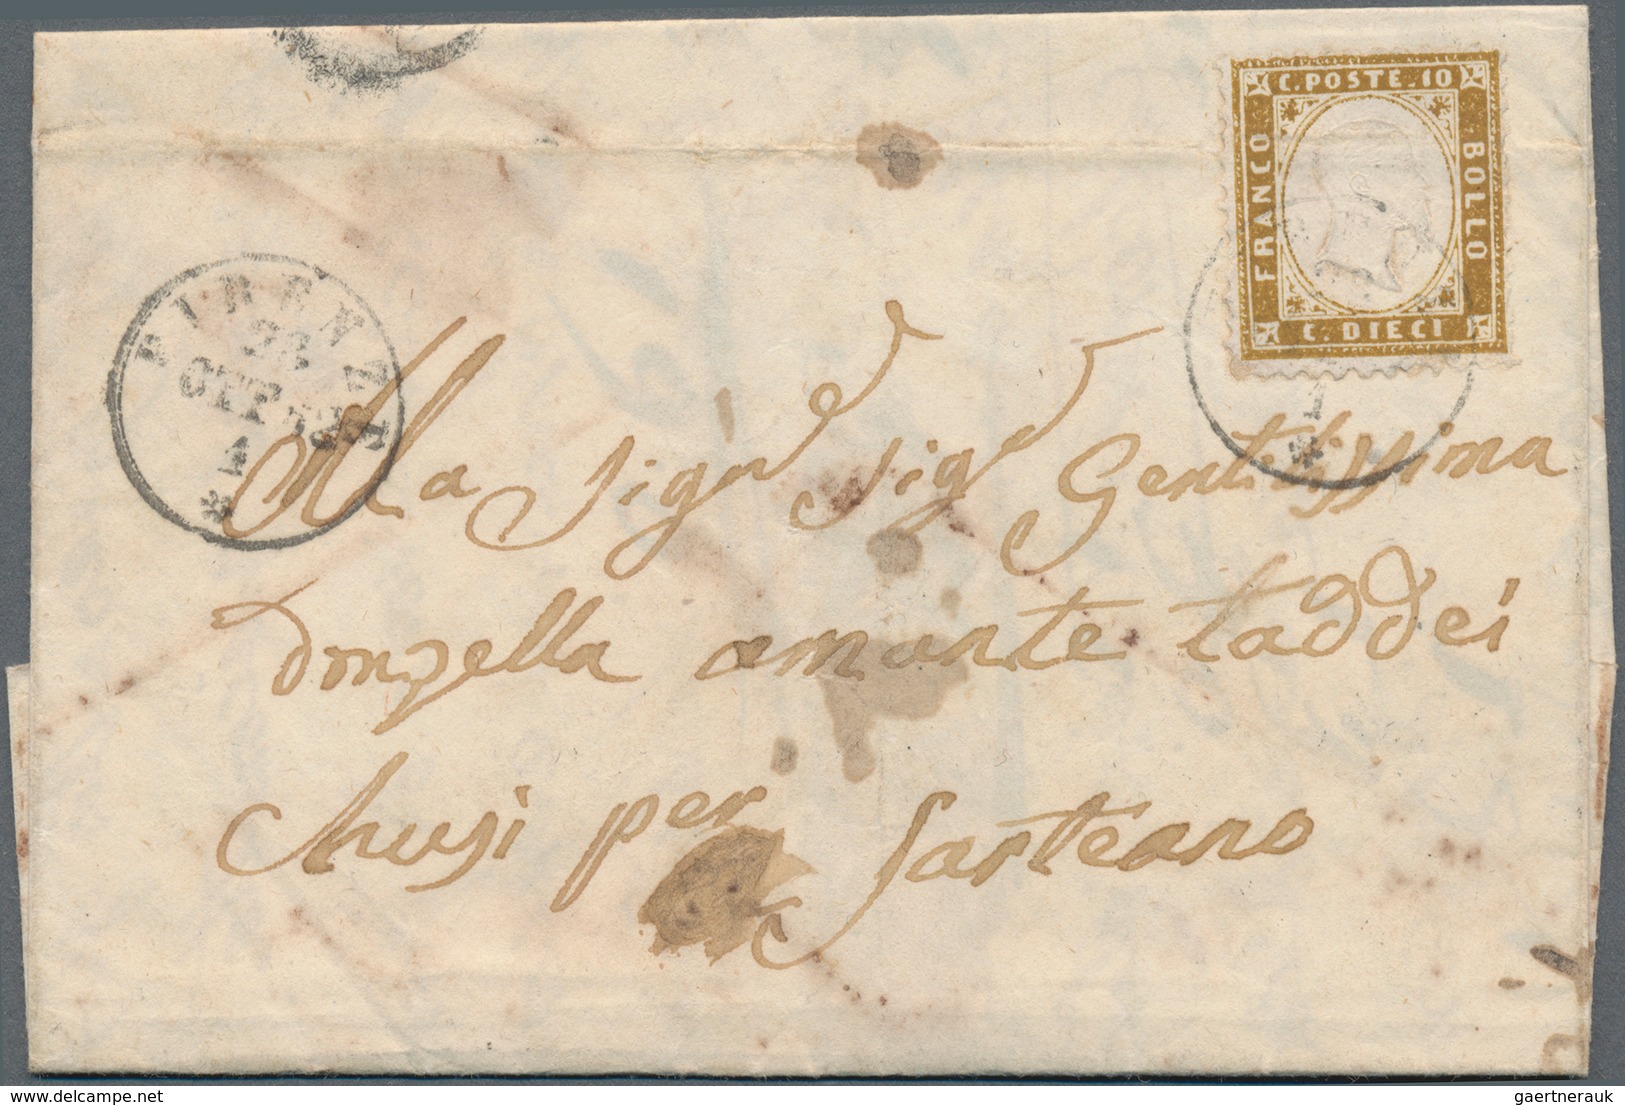 C. POSTE. 10
FRANCO
BOLLO
C. DIECI
FIRENZE
OTT
1
Alla Sigra Sigra Gentilissima
donzella amante taddei
chusi per Sarteano
delcampe.net
gaertnerauk